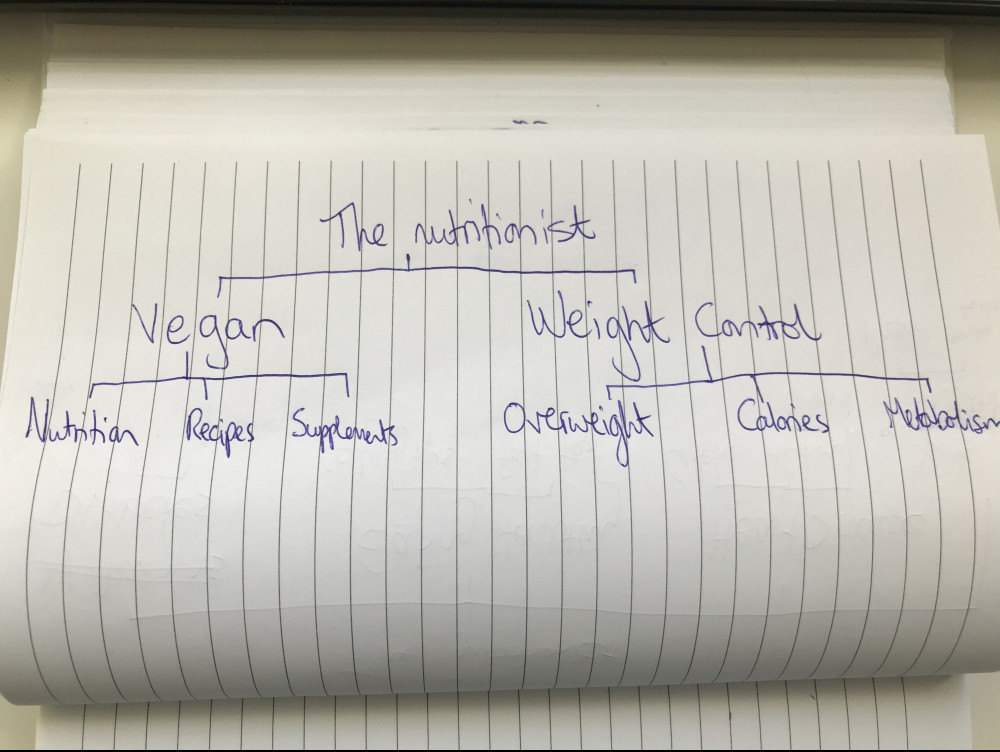 The nutritionist
Vegan Weight Control
Nutrition Recipes Supplements Overweight Calories Metabolism